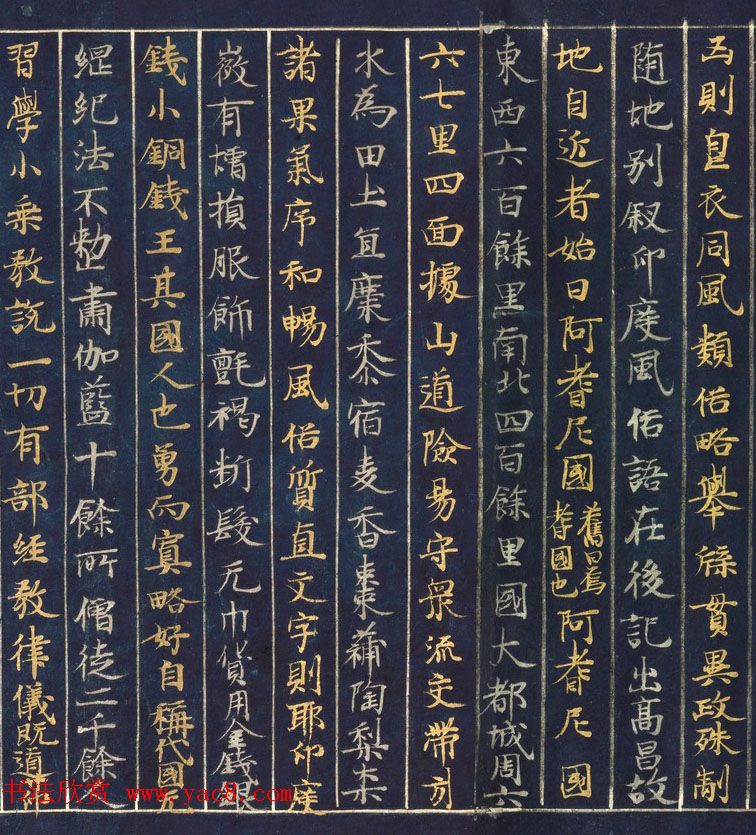 凶則皂衣同風類俗略舉條貫異政殊制
随地别叙印度風俗語在後記出髙昌故
地自近者始曰阿耆尼國舊曰焉耆國也阿耆尼國
東西六百餘里南北四百餘里國大都城周六
六七里四面據山道險易守衆流交帶引
水為田土宜糜黍宿麦香棗蒲陶梨柰
諸果氣序和暢風俗質直文字則取印度
微有增損服飾氎褐断髮无巾貨用金錢銀
錢小銅錢王其國人也勇而寡略好自稱伐國无
綱紀法不整肅伽藍十餘所僧徒二千餘人
習學小乘教說一切有部經教律儀既遵
书法欣赏 www.yac8.com